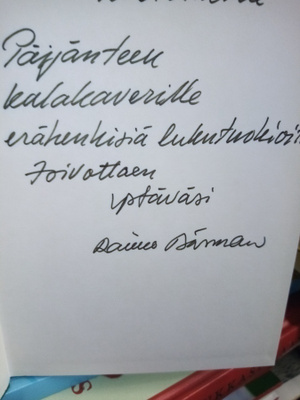 Päijänteen
kalakaverille
erähenkisiä lukutuokioi
toivottaen
ystäväsi
Raimo